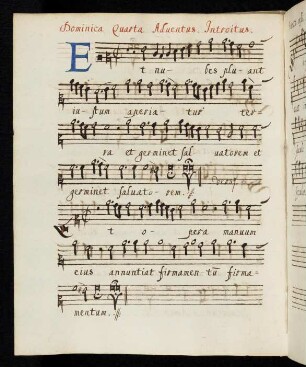 Dominica Quarta Aduentus. Introitus.
E t nu- bes plu- ant
iu- stum aperia- tur ter-
ra et germinet sal uatorem et
germinet saluato- rem.
t o- pera manuum
eius annuntiat firmamen- tū firma-
mentum.